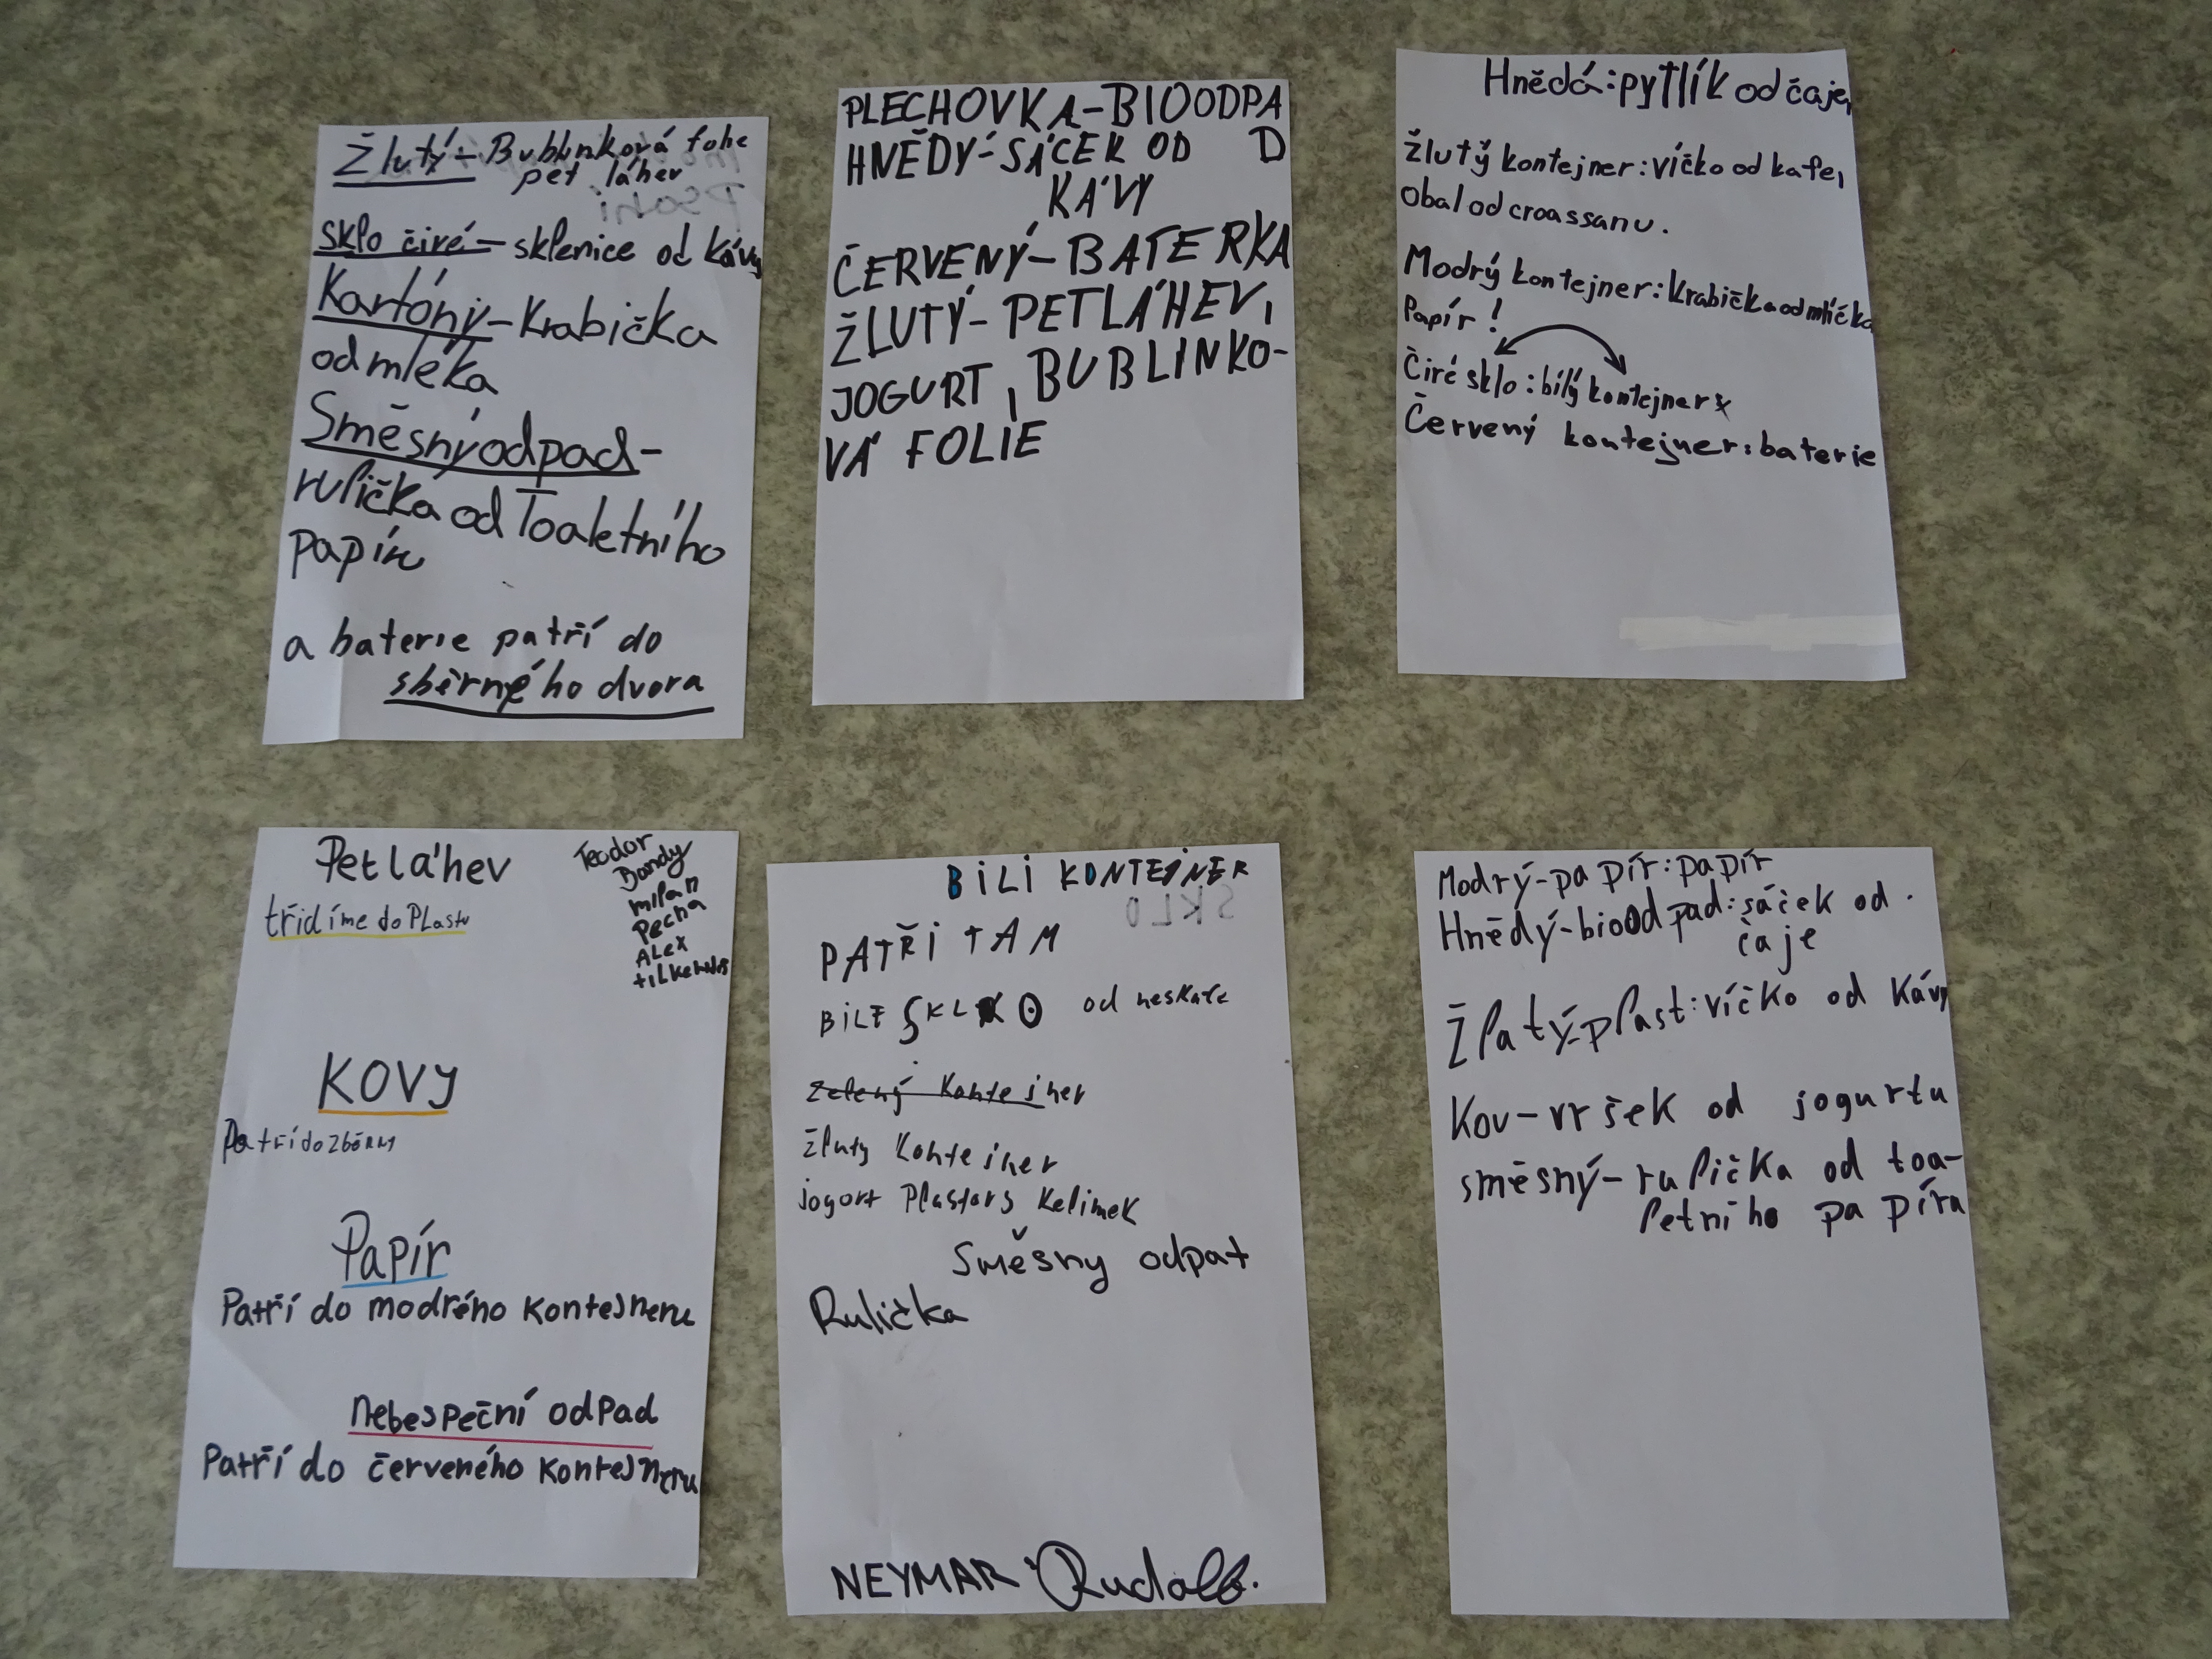 Žlutý - Bublinková folie
pet láhev
sklo čiré - sklenice od kávy
Kartóny - Krabička
od mléka
Směsný odpad -
rulička od Toaletního
papíru
a baterie patří do
sběrného dvora
PLECHOVKA - BIOODPA
D
HNĚDÝ - SÁČEK OD
KÁVY
ČERVENÝ - BATERKA
ŽLUTÝ - PETLÁHEV,
JOGURT, BUBLINKO-
VÁ FOLIE
Hnědá: pytlík od čaje,
Žlutý kontejner: víčko od kafe,
Obal od croassanu.
Modrý kontejner: krabička od mlíčka
Papír!
Čiré sklo: bílý kontejner x
Červený kontejner: baterie
Petláhev
třidíme do Plastu
Teodor
Dandy
milan
Pecha
ALEX
KOVY
Patří do zběrny
Papír
Patří do modrého kontejneru
nebespeční odpad
Patří do červeného kontejneru
BÍLÍ KONTEJNER
SKLO
PATŘÍ TAM
BÍLÉ SKLO od neskafe
Zelený Kontejner
žlutý Kontejner
jogort Plastors Kelimek
Směsny odpat
Rulička
NEYMAR Rudolf.
Modrý - papír: papír
Hnědý - bioodpad: sáček od
čaje
Žlatý - plast: víčko od kávy
Kov - vršek od jogurtu
směsný - rulička od toa-
letního papíru